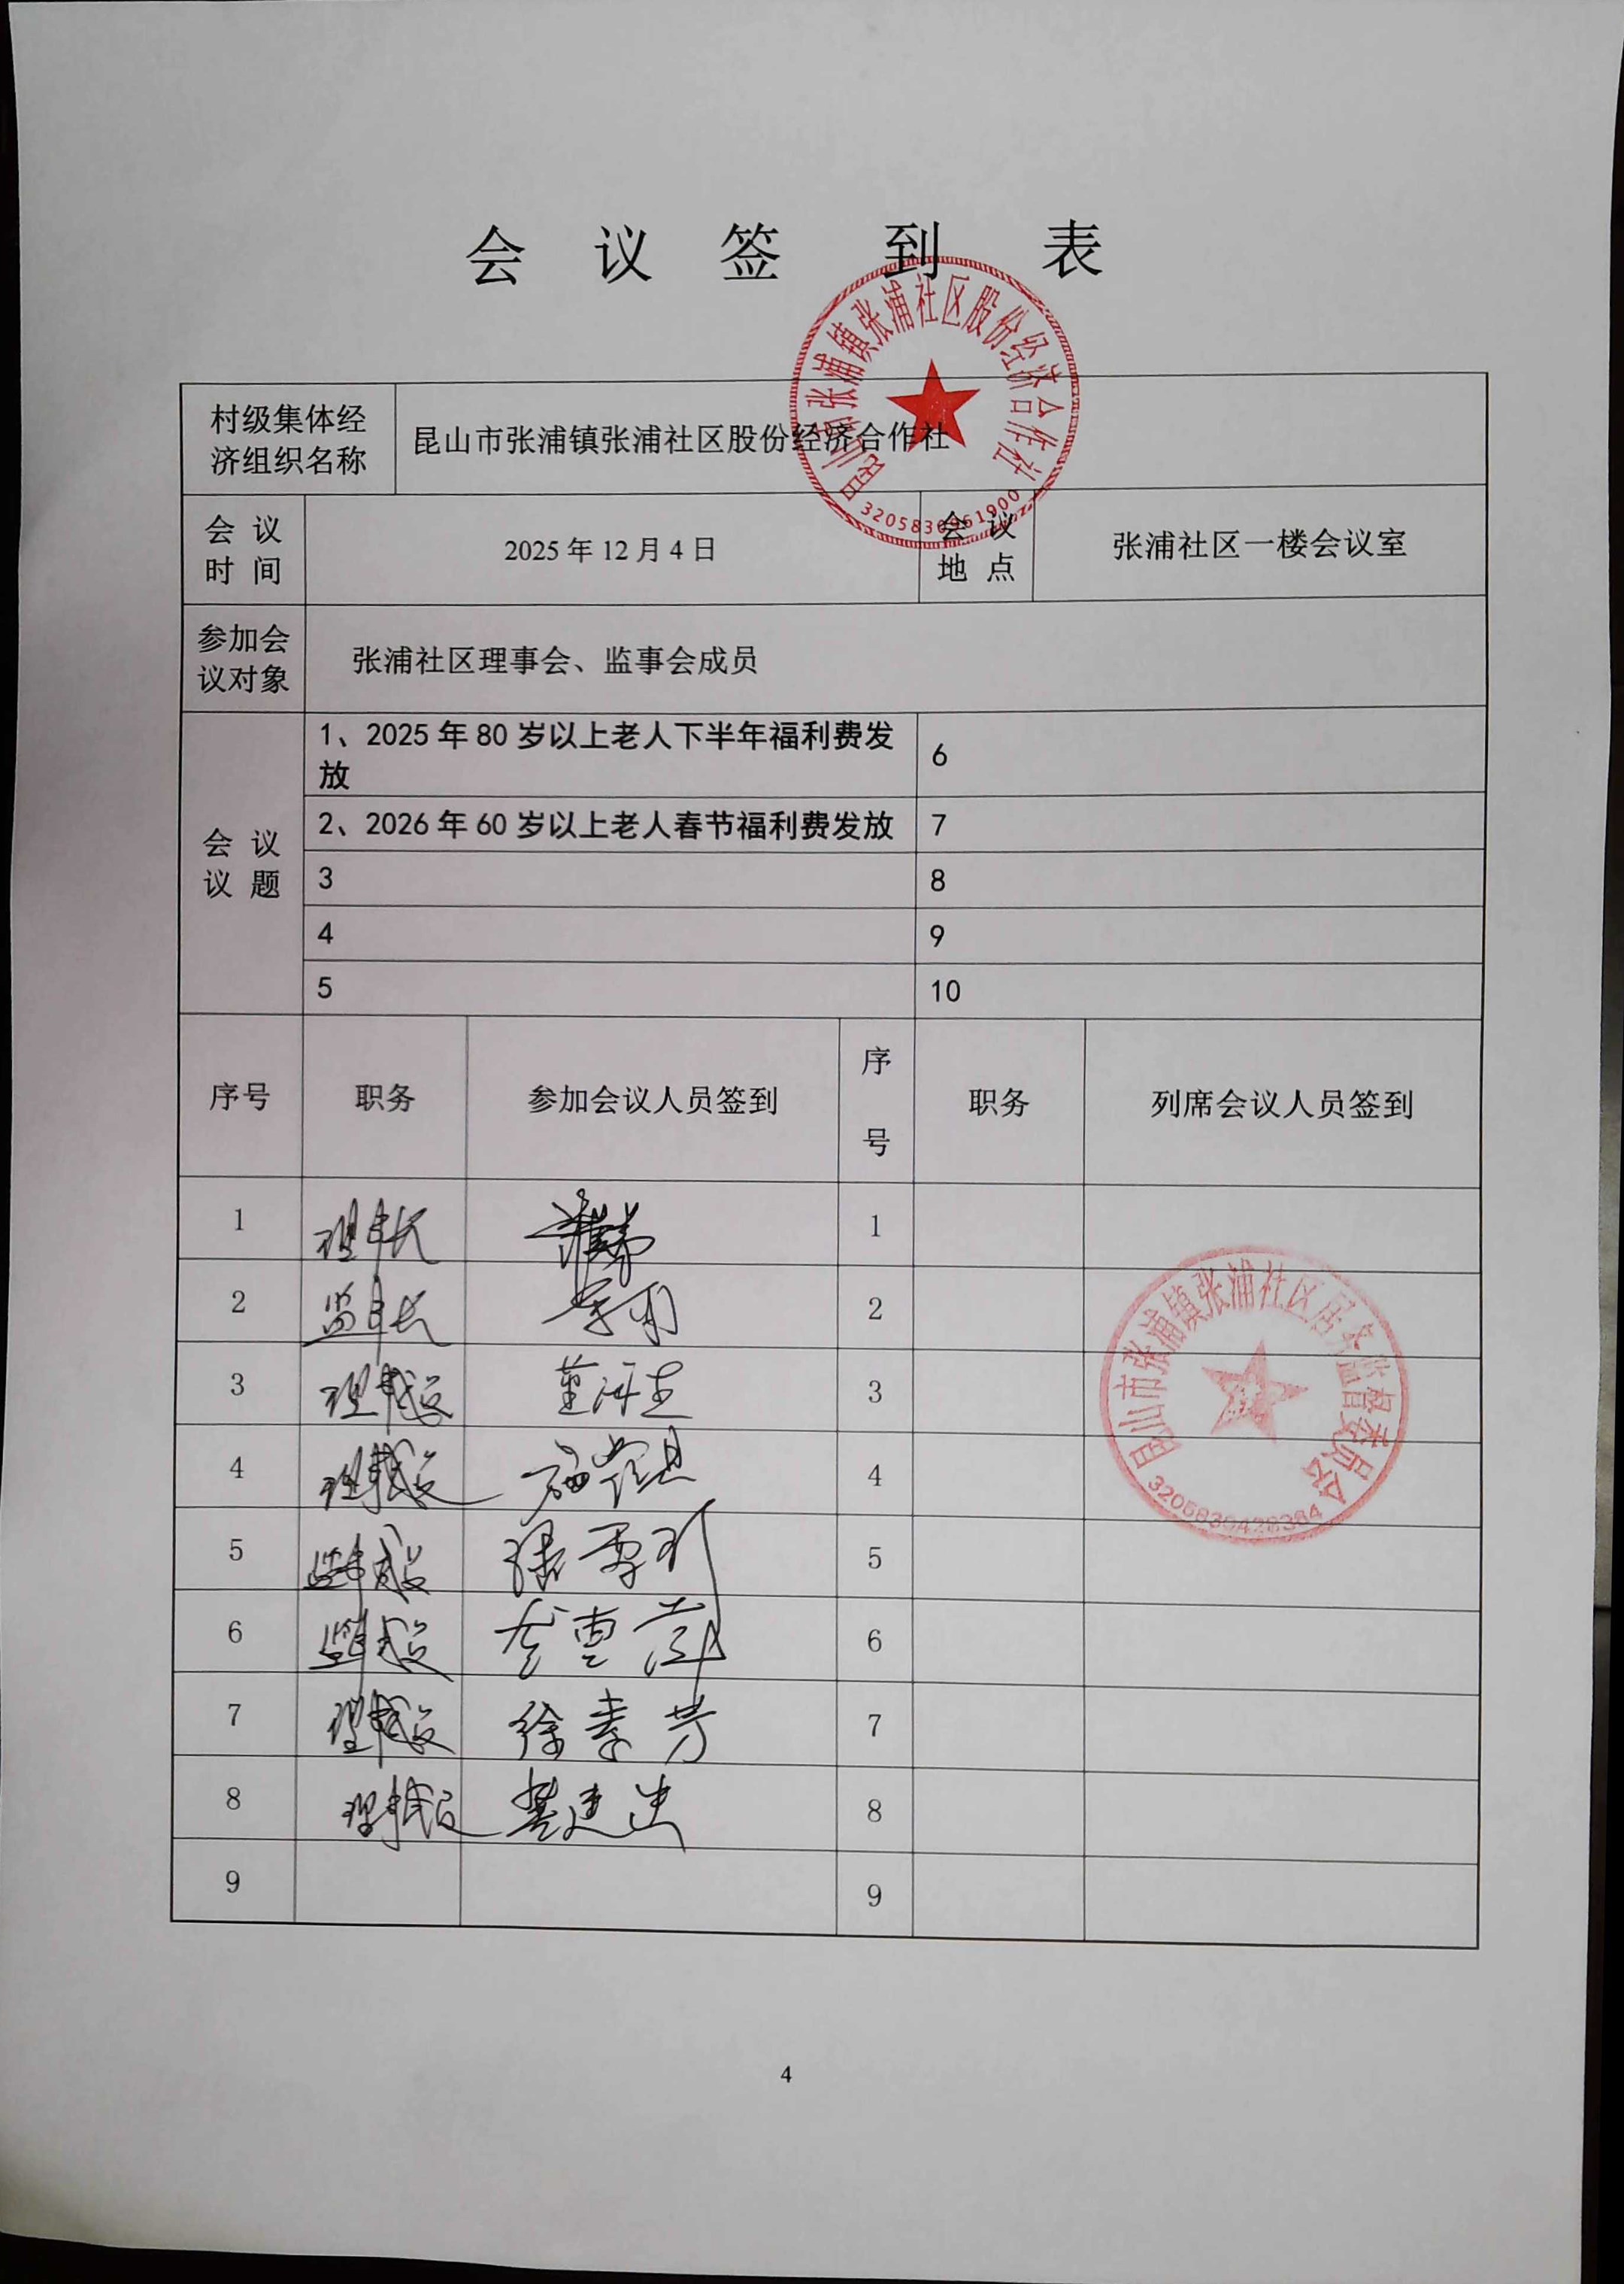 会 议 签 到 表
昆山市张浦镇张浦社区股份经济合作社
3205830961900
村级集体经
济组织名称
昆山市张浦镇张浦社区股份经济合作社
会 议
时 间
2025 年 12 月 4 日
会 议
地 点
张浦社区一楼会议室
参加会
议对象
张浦社区理事会、监事会成员
会 议
议 题
1、2025 年 80 岁以上老人下半年福利费发
放
6
2、2026 年 60 岁以上老人春节福利费发放
7
3
8
4
9
5
10
序号
职务
参加会议人员签到
序
号
职务
列席会议人员签到
1
理事长
1
2
监事长
2
3
理事成员
3
4
理事成员
4
5
监事成员
5
6
监事成员
6
7
理事成员
徐孝芳
7
8
理事成员
龚建忠
8
9
9
昆山市张浦镇张浦社区居务监督委员会
3205830428384
4